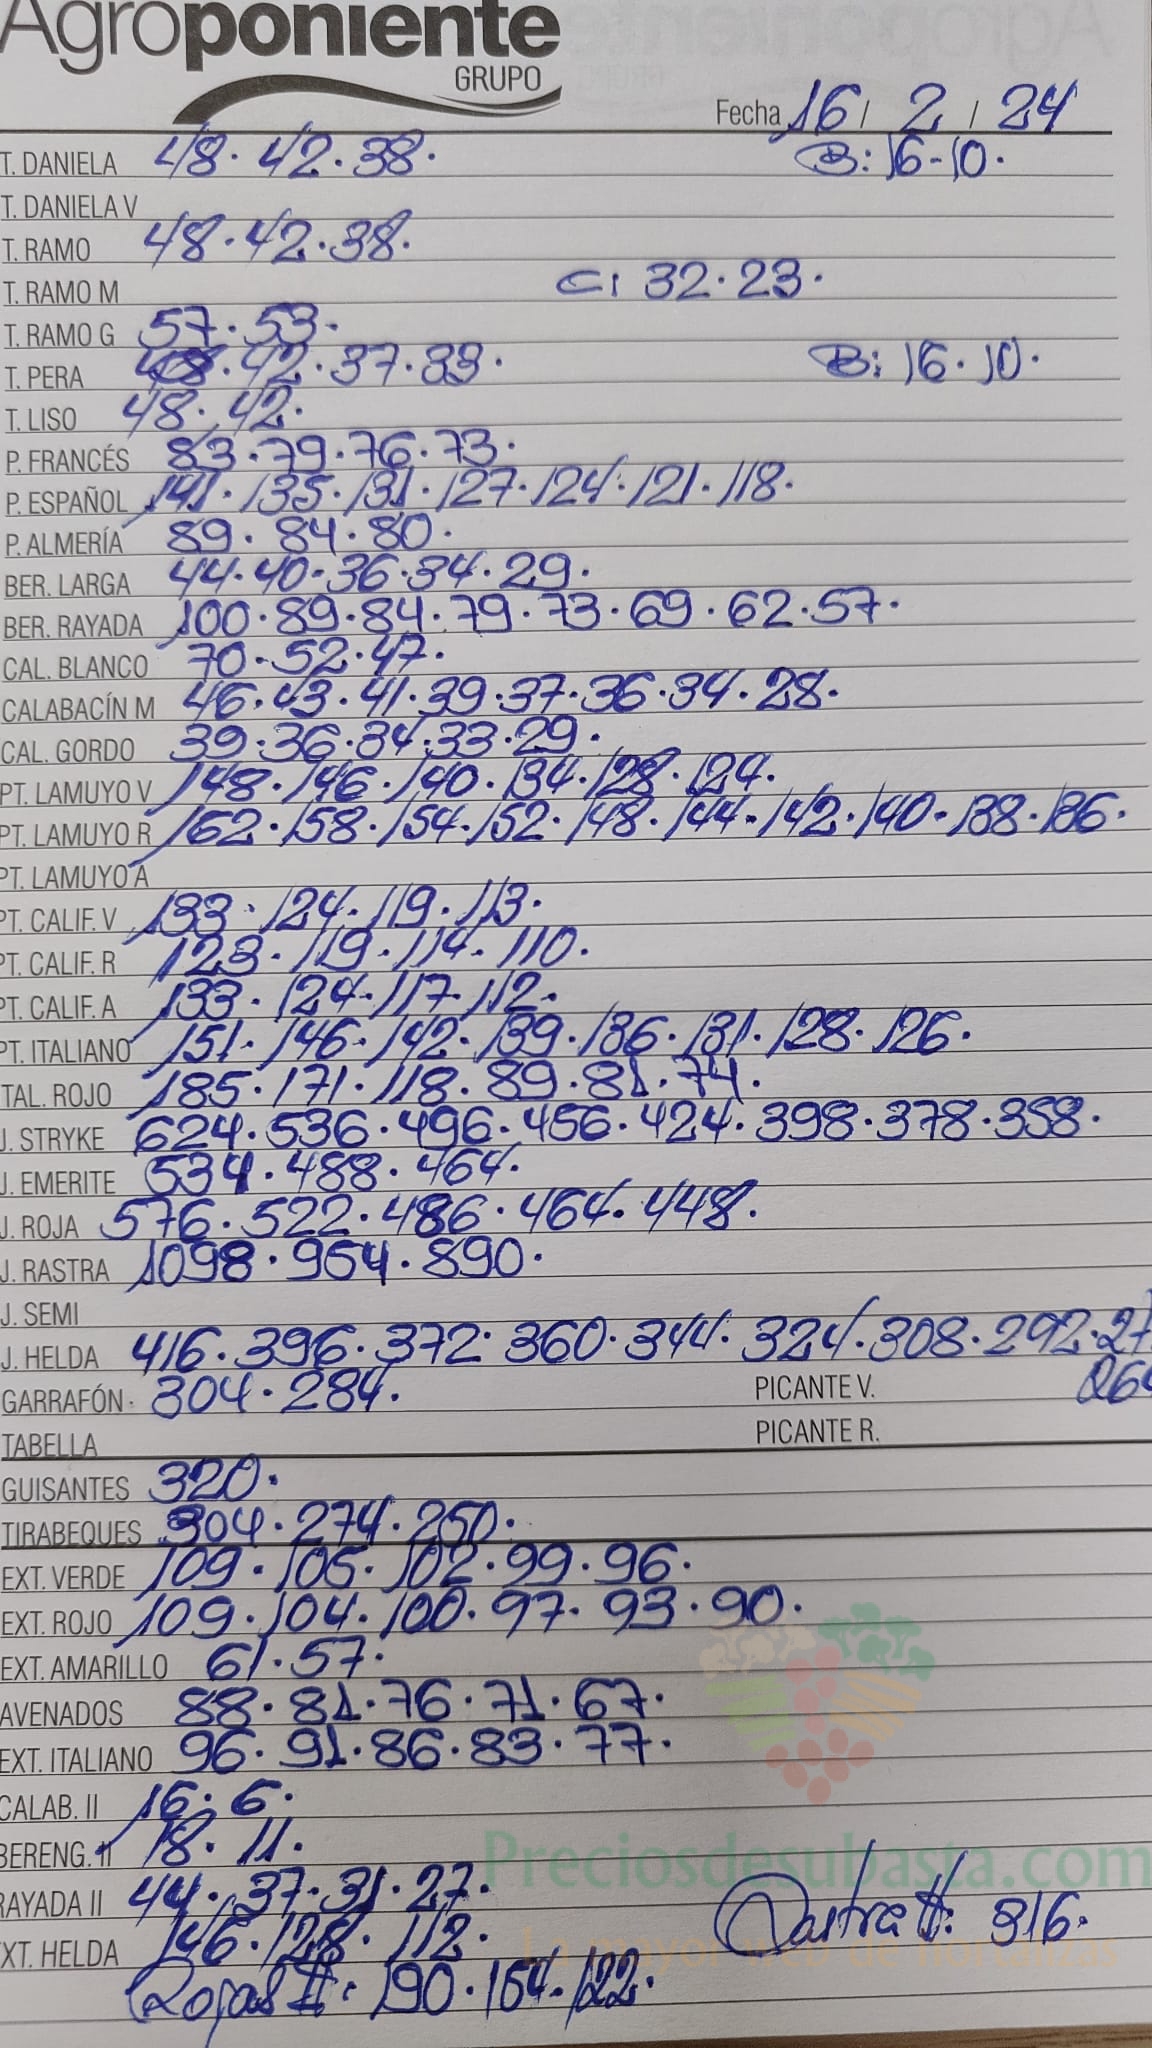 Agroponiente
GRUPO
Fecha 16 / 2 / 24
T. DANIELA 48. 42. 38. B: 16-10.
T. DANIELA V
T. RAMO 48. 42. 38.
T. RAMO M C: 32. 23.
T. RAMO G 57. 53.
T. PERA 48. 42. 37. 33. B: 16. 10.
T. LISO 48. 42.
P. FRANCÉS 83. 79. 76. 73.
P. ESPAÑOL 141. 135. 131. 127. 124. 121. 118.
P. ALMERÍA 89. 84. 80.
BER. LARGA 44. 40. 36. 34. 29.
BER. RAYADA 100. 89. 84. 79. 73. 69. 62. 57.
CAL. BLANCO 70. 52. 47.
CALABACÍN M 46. 43. 41. 39. 37. 36. 34. 28.
CAL. GORDO 39. 36. 34. 33. 29.
PT. LAMUYO V 148. 146. 140. 134. 128. 124.
PT. LAMUYO R 162. 158. 154. 152. 148. 144. 142. 140. 138. 136.
PT. LAMUYO A
PT. CALIF. V 133. 124. 119. 113.
PT. CALIF. R 123. 119. 114. 110.
PT. CALIF. A 133. 124. 117. 112.
PT. ITALIANO 151. 146. 142. 139. 136. 131. 128. 126.
TAL. ROJO 185. 171. 118. 89. 81. 74.
J. STRYKE 624. 536. 496. 456. 424. 398. 378. 358.
J. EMERITE 534. 488. 464.
J. ROJA 576. 522. 486. 464. 448.
J. RASTRA 1098. 954. 890.
J. SEMI
J. HELDA 416. 396. 372. 360. 344. 324. 308. 292. 27
GARRAFÓN. 304. 284. PICANTE V. 264
TABELLA PICANTE R.
GUISANTES 320.
TIRABEQUES 304. 274. 250.
EXT. VERDE 109. 105. 102. 99. 96.
EXT. ROJO 109. 104. 100. 97. 93. 90.
EXT. AMARILLO 61. 57.
AVENADOS 88. 81. 76. 71. 67.
EXT. ITALIANO 96. 91. 86. 83. 77.
CALAB. II 16. 6.
BERENG. II 18. 11.
Preciosdesubasta.com
RAYADA II 44. 37. 31. 27. Rastra II: 316.
XT. HELDA 146. 128. 112.
La mayor web de hortalizas
Rojas II: 190. 154. 122.